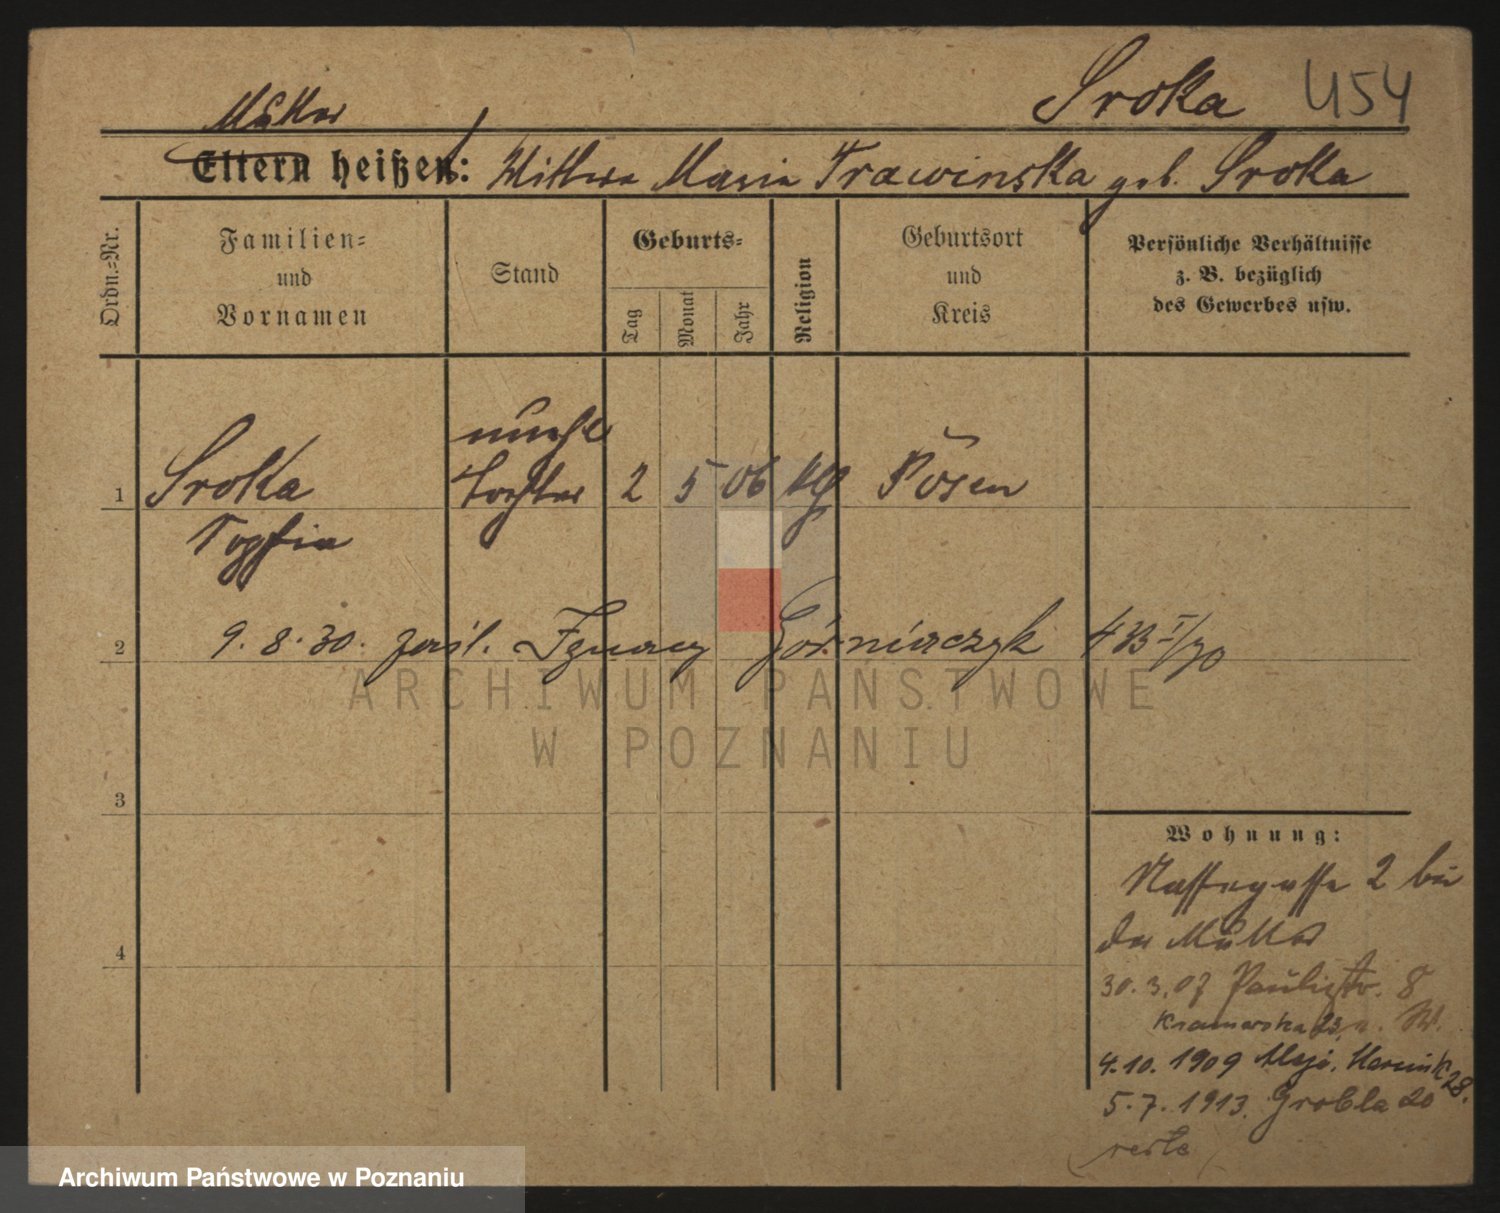 Sroka 454
Mutter
Eltern heißen: Wittwe Maria Trawinska geb. Sroka
Ordn.-Nr.
Familien-
und
Vornamen
Stand
Geburts-
Tag
Monat
Jahr
Religion
Geburtsort
und
Kreis
Persönliche Verhältnisse
z. B. bezüglich
des Gewerbes usw.
unehl
1 Sroka Tochter 2 5 06 Posen
Sophia
2 9. 8. 30. zaśl. Ignacy Górniaczyk 433 I/30
3
4
Wohnung:
Nassegasse 2 bei
der Mutter
30.3.07 Paulistr. 8
Kramarska 23
4.10.1909 28.
5.7.1913. Grobla 20
ARCHIWUM PAŃSTWOWE
W POZNANIU
Archiwum Państwowe w Poznaniu